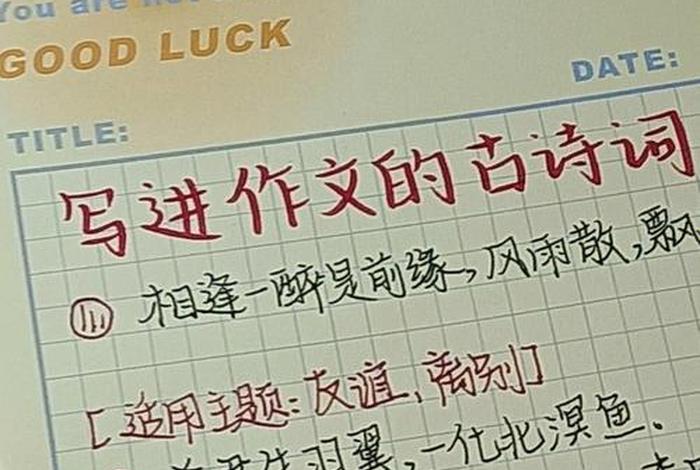 You are
GOOD LUCK
DATE:
TITLE:
写进作文的古诗词
① 相逢一醉是前缘,风雨散,飘
[适用主题:友谊、离别]
生羽翼,一化北溟鱼.